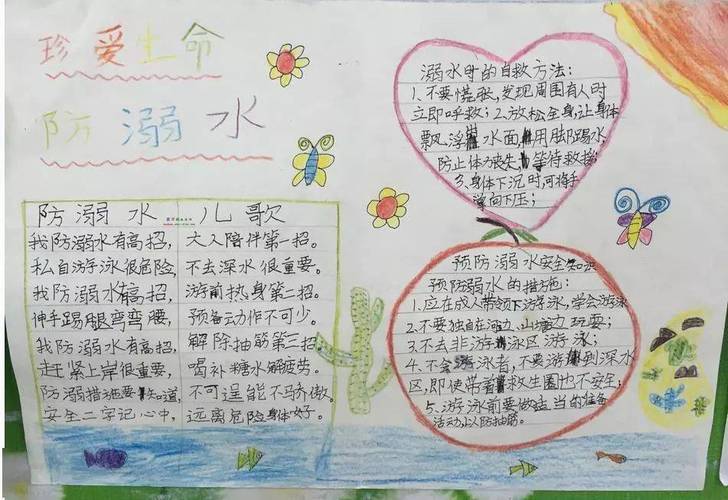 珍爱生命
防溺水
防溺水 儿歌
我防溺水有高招，大人陪伴第一招。
私自游泳很危险，不去深水很重要。
我防溺水有高招，游前热身第二招。
伸手踢腿弯弯腰，预备动作不可少。
我防溺水有高招，解除抽筋第三招
赶紧上岸很重要，喝补糖水解疲劳。
防溺措施要知道，不可逞能不骄傲。
安全二字记心中，远离危险身体好。
溺水时的自救方法：
1、不要慌张，发现周围有人时
立即呼救；2、放松全身，让身体
飘浮水面，用脚踢水，
防止体力丧失，等待救援；
3、身体下沉时，可将手
掌向下压；
预防溺水安全知识
预防溺水的措施：
1、应在成人带领下游泳，学会游泳
2、不要独自在河边、山塘边玩耍；
3、不去非游泳区游泳；
4、不会游泳者，不要游到深水
区，即使带着救生圈也不安全；
5、游泳前要做适当的准备
活动，以防抽筋。